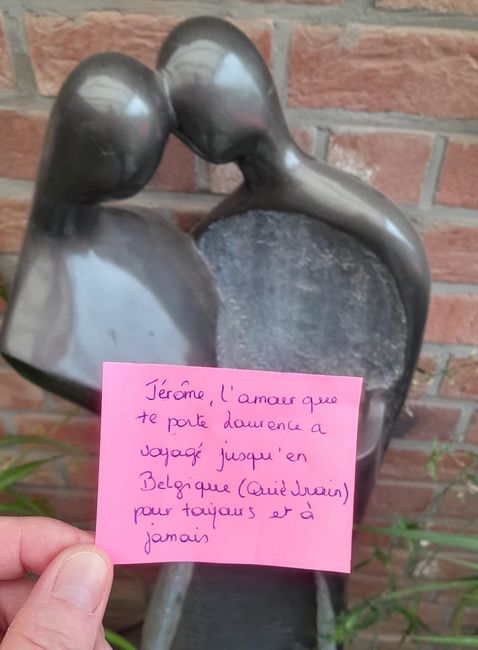 Jérôme, l'amour que
te porte Laurence a
voyagé jusqu'en
Belgique (Quiévrain)
pour toujours et à
jamais